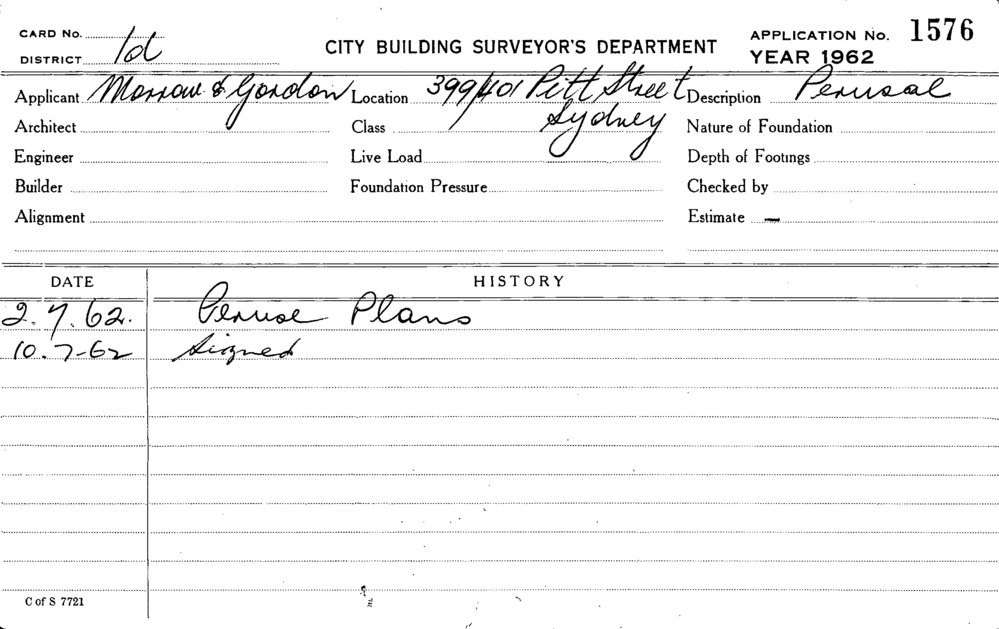 CARD No.
DISTRICT 1d
CITY BUILDING SURVEYOR'S DEPARTMENT
APPLICATION No. 1576
YEAR 1962
Applicant Morrow & Gordon Location 399/401 Pitt Street Description Perusal
Architect Class Sydney Nature of Foundation
Engineer Live Load Depth of Footings
Builder Foundation Pressure Checked by
Alignment Estimate —
DATE HISTORY
2.7.62. Peruse Plans
10.7-62 Signed
C of S 7721